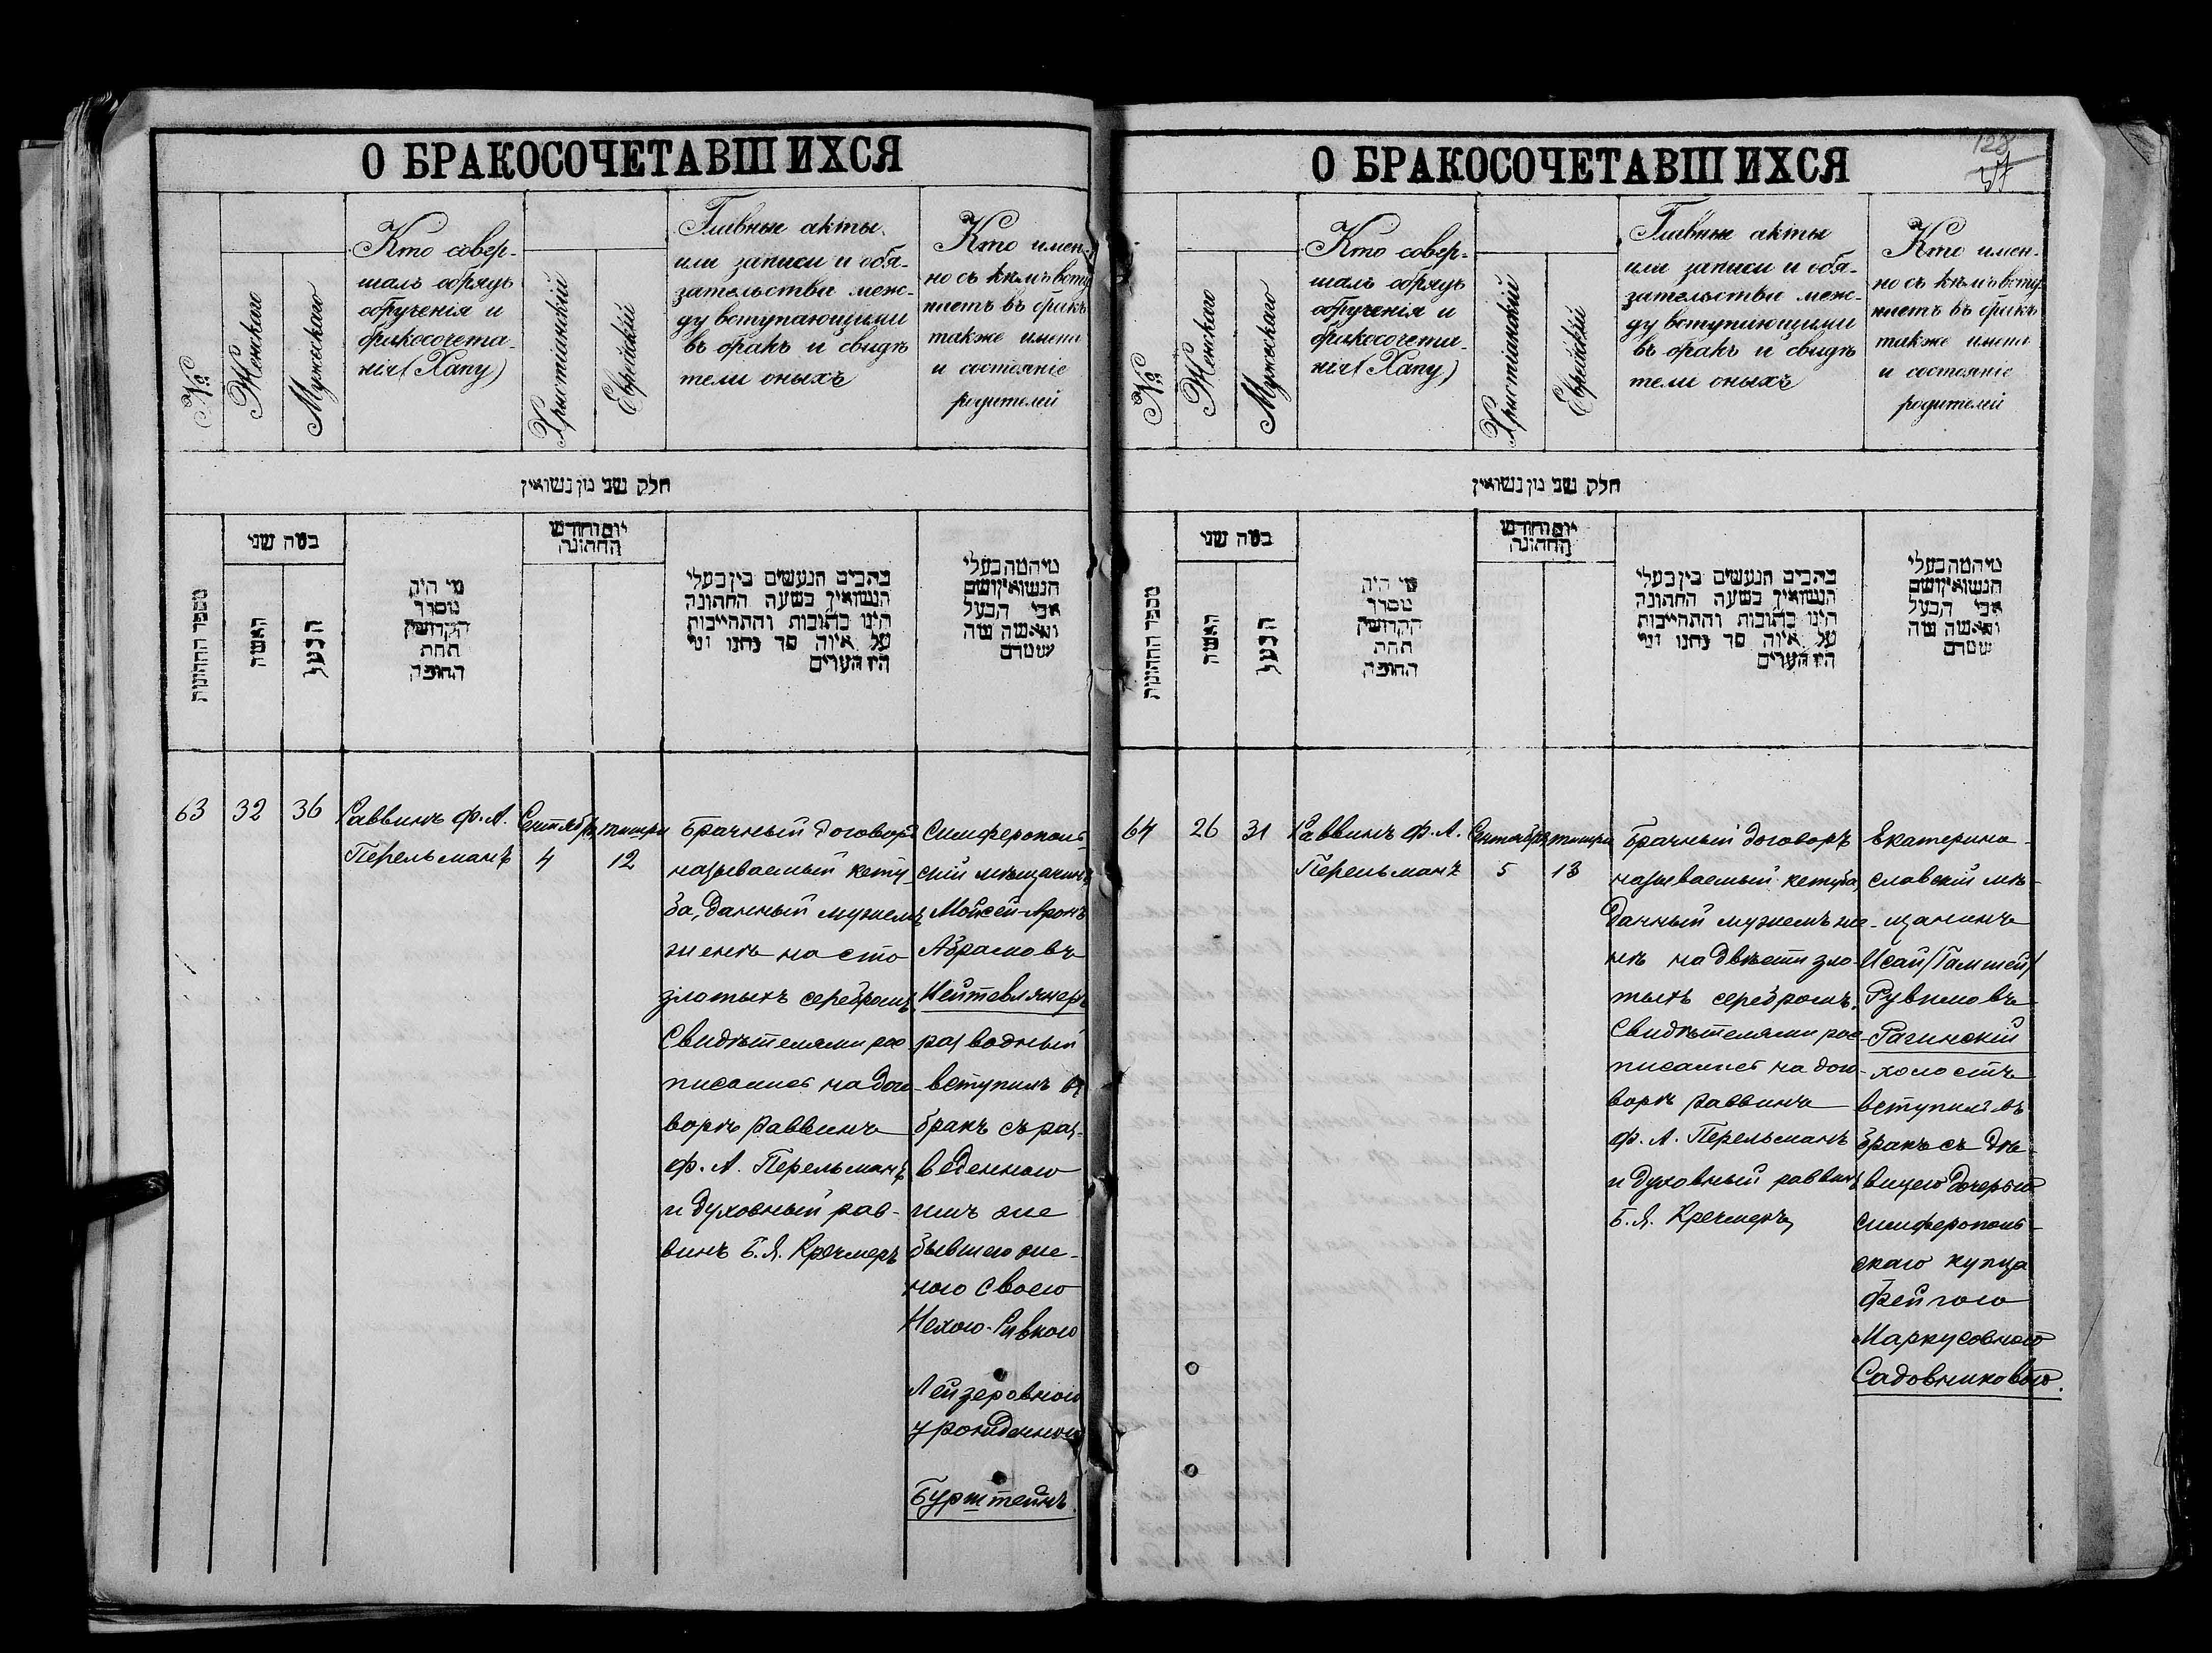 О БРАКОСОЧЕТАВШИХСЯ
№
Женскаго
Мужескаго
Кто совер-
шалъ обрядъ
обрученія и
бракосочета-
нія (Хапу)
Христіанскій
Еврейскій
Главные акты
или записи и обя-
зательства меж-
ду вступающими
въ бракъ и свидѣ
тели оныхъ
Кто имен-
но съ кѣмъ всту
паетъ въ бракъ
также имена
и состояніе
родителей
חלק שני מן נשואין
מספר החתונות
בטה שני
האשה
הבעל
מי היה
מסדר
הקדושין
תחת
החופה
יום וחודש
החתונה
כתבים הנעשים בין בעלי
הנשואין בשעה החתונה
הינו כתובות והתחייבות
על איזה סך נתנו ומי
היו העדים
אבי הבעל
63
32
36
Раввинъ Ф. А.
Перельманъ
Сентябрь
4
тишри
12
Брачный договоръ
называемый кету-
ба, данный мужемъ
женѣ на сто
злотыхъ серебромъ.
Свидѣтелями рос-
писались на дого-
ворѣ раввинъ
Ф. А. Перельманъ
и духовный рав-
винъ Б. Я. Кречмеръ
Симферополь-
скій мѣщанинъ
Мойсей-Аронъ
Абрамовъ
разводный
вступилъ въ
бракъ съ раз-
веденною
имъ же
бывшею же-
ною своею
Нехою-Ривкою
Лейзеровною
урожденною
Бурштейнъ.
О БРАКОСОЧЕТАВШИХСЯ
128
57
№
Женскаго
Мужескаго
Кто совер-
шалъ обрядъ
обрученія и
бракосочета-
нія (Хапу)
Христіанскій
Еврейскій
Главные акты
или записи и обя-
зательства меж-
ду вступающими
въ бракъ и свидѣ
тели оныхъ
Кто имен-
но съ кѣмъ всту
паетъ въ бракъ
также имена
и состояніе
родителей
חלק שני מן נשואין
מספר החתונות
בטה שני
האשה
הבעל
מי היה
מסדר
הקדושין
תחת
החופה
יום וחודש
החתונה
כתבים הנעשים בין בעלי
הנשואין בשעה החתונה
הינו כתובות והתחייבות
על איזה סך נתנו ומי
היו העדים
אבי הבעל
64
26
31
Раввинъ Ф. А.
Перельманъ
Сентябрь
5
тишри
13
Брачный договоръ
называемый кетуба
данный мужемъ же-
нѣ на двѣсти зло-
тыхъ серебромъ.
Свидѣтелями рос-
писались на дого-
ворѣ раввинъ
Ф. А. Перельманъ
и духовный раввинъ
Б. Я. Кречмеръ
Екатерино-
славскій мѣ-
щанинъ
Исай
Рувимовъ
Рагинскій
холостъ
вступилъ въ
бракъ съ дѣ-
вицею дочерью
симферополь-
скаго купца
Фейгою
Маркусовною
Садовниковою.